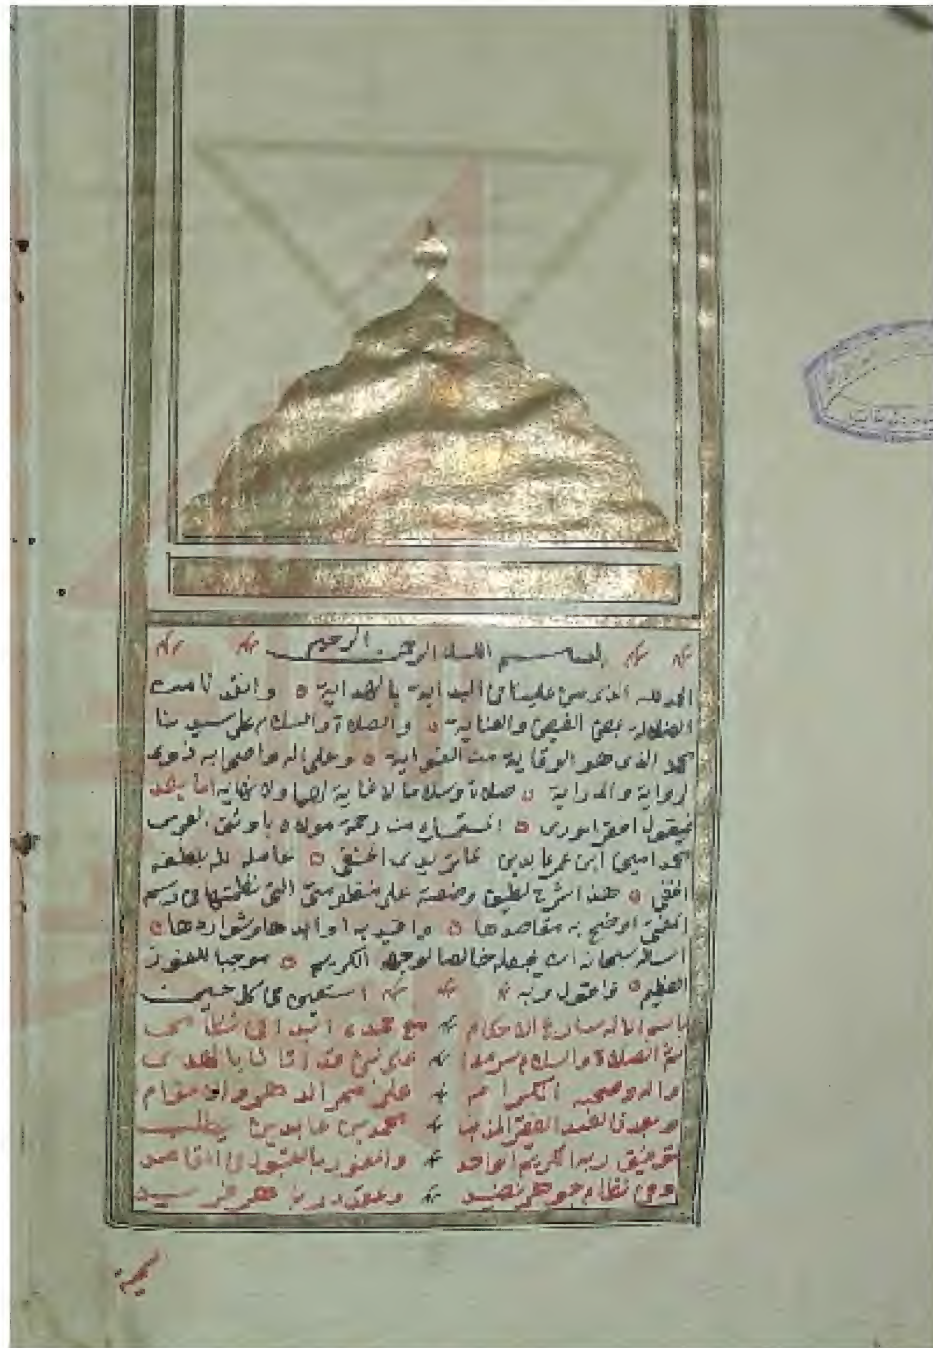 بسم الله الرحمن الرحيم
الحمد لله الذي من علينا في البداية بالهداية وانقذنا من
الضلالة بمحض الفيض والعناية والصلاة والسلام على سيدنا
محمد الذي هو الوقاية من الغواية وعلى اله واصحابه ذوي
الرواية والدراية صلاة وسلاما لا غاية لهما ولا نهاية اما بعد
فيقول افقر الورى المستمسك من رحمة مولاه باوثق العرى
محمد امين ابن عمر عابدين الماتريدي الحنفي عامله الله بلطفه
الخفي هذا شرح لطيف وضعته على منظومتي التي نظمتها في رسم
المفتي اوضح به مقاصدها واقيد به اوابدها وشواردها
اسأله سبحانه ان يجعله خالصا لوجهه الكريم موجبا للفوز
العظيم فاقول وبه استعين في كل حين
باسم الاله شارع الاحكام مع حمده ابدأ في نظامي
ثم الصلاة والسلام سرمدا على نبي قد اتانا بالهدى
واله وصحبه الكرام على ممر الدهر والاعوام
وبعد فالعبد الفقير المذنب محمد بن عابدين يطلب
توفيق ربه الكريم الواحد والفوز بالقبول في المقاصد
وفي نظام جوهر نضيد وعقد در باهر فريد